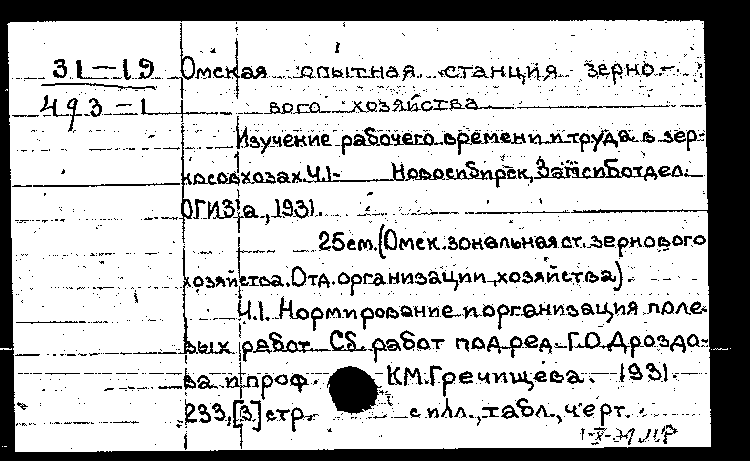 31-19 Омская опытная станция зерно-
493-1 вого хозяйства
Изучение рабочего времени и труда в зер-
носовхозах. Ч.1- Новосибирск, Запсиботдел.
ОГИЗ'а, 1931.
25см. (Омск. зональная ст. зернового
хозяйства. Отд. организации хозяйства).
Ч.1. Нормирование и организация поле-
вых работ. Сб. работ под ред. Г.О. Дроздо-
ва и проф. К.М. Гречищева. 1931.
233, [3] стр. с илл., табл., черт.